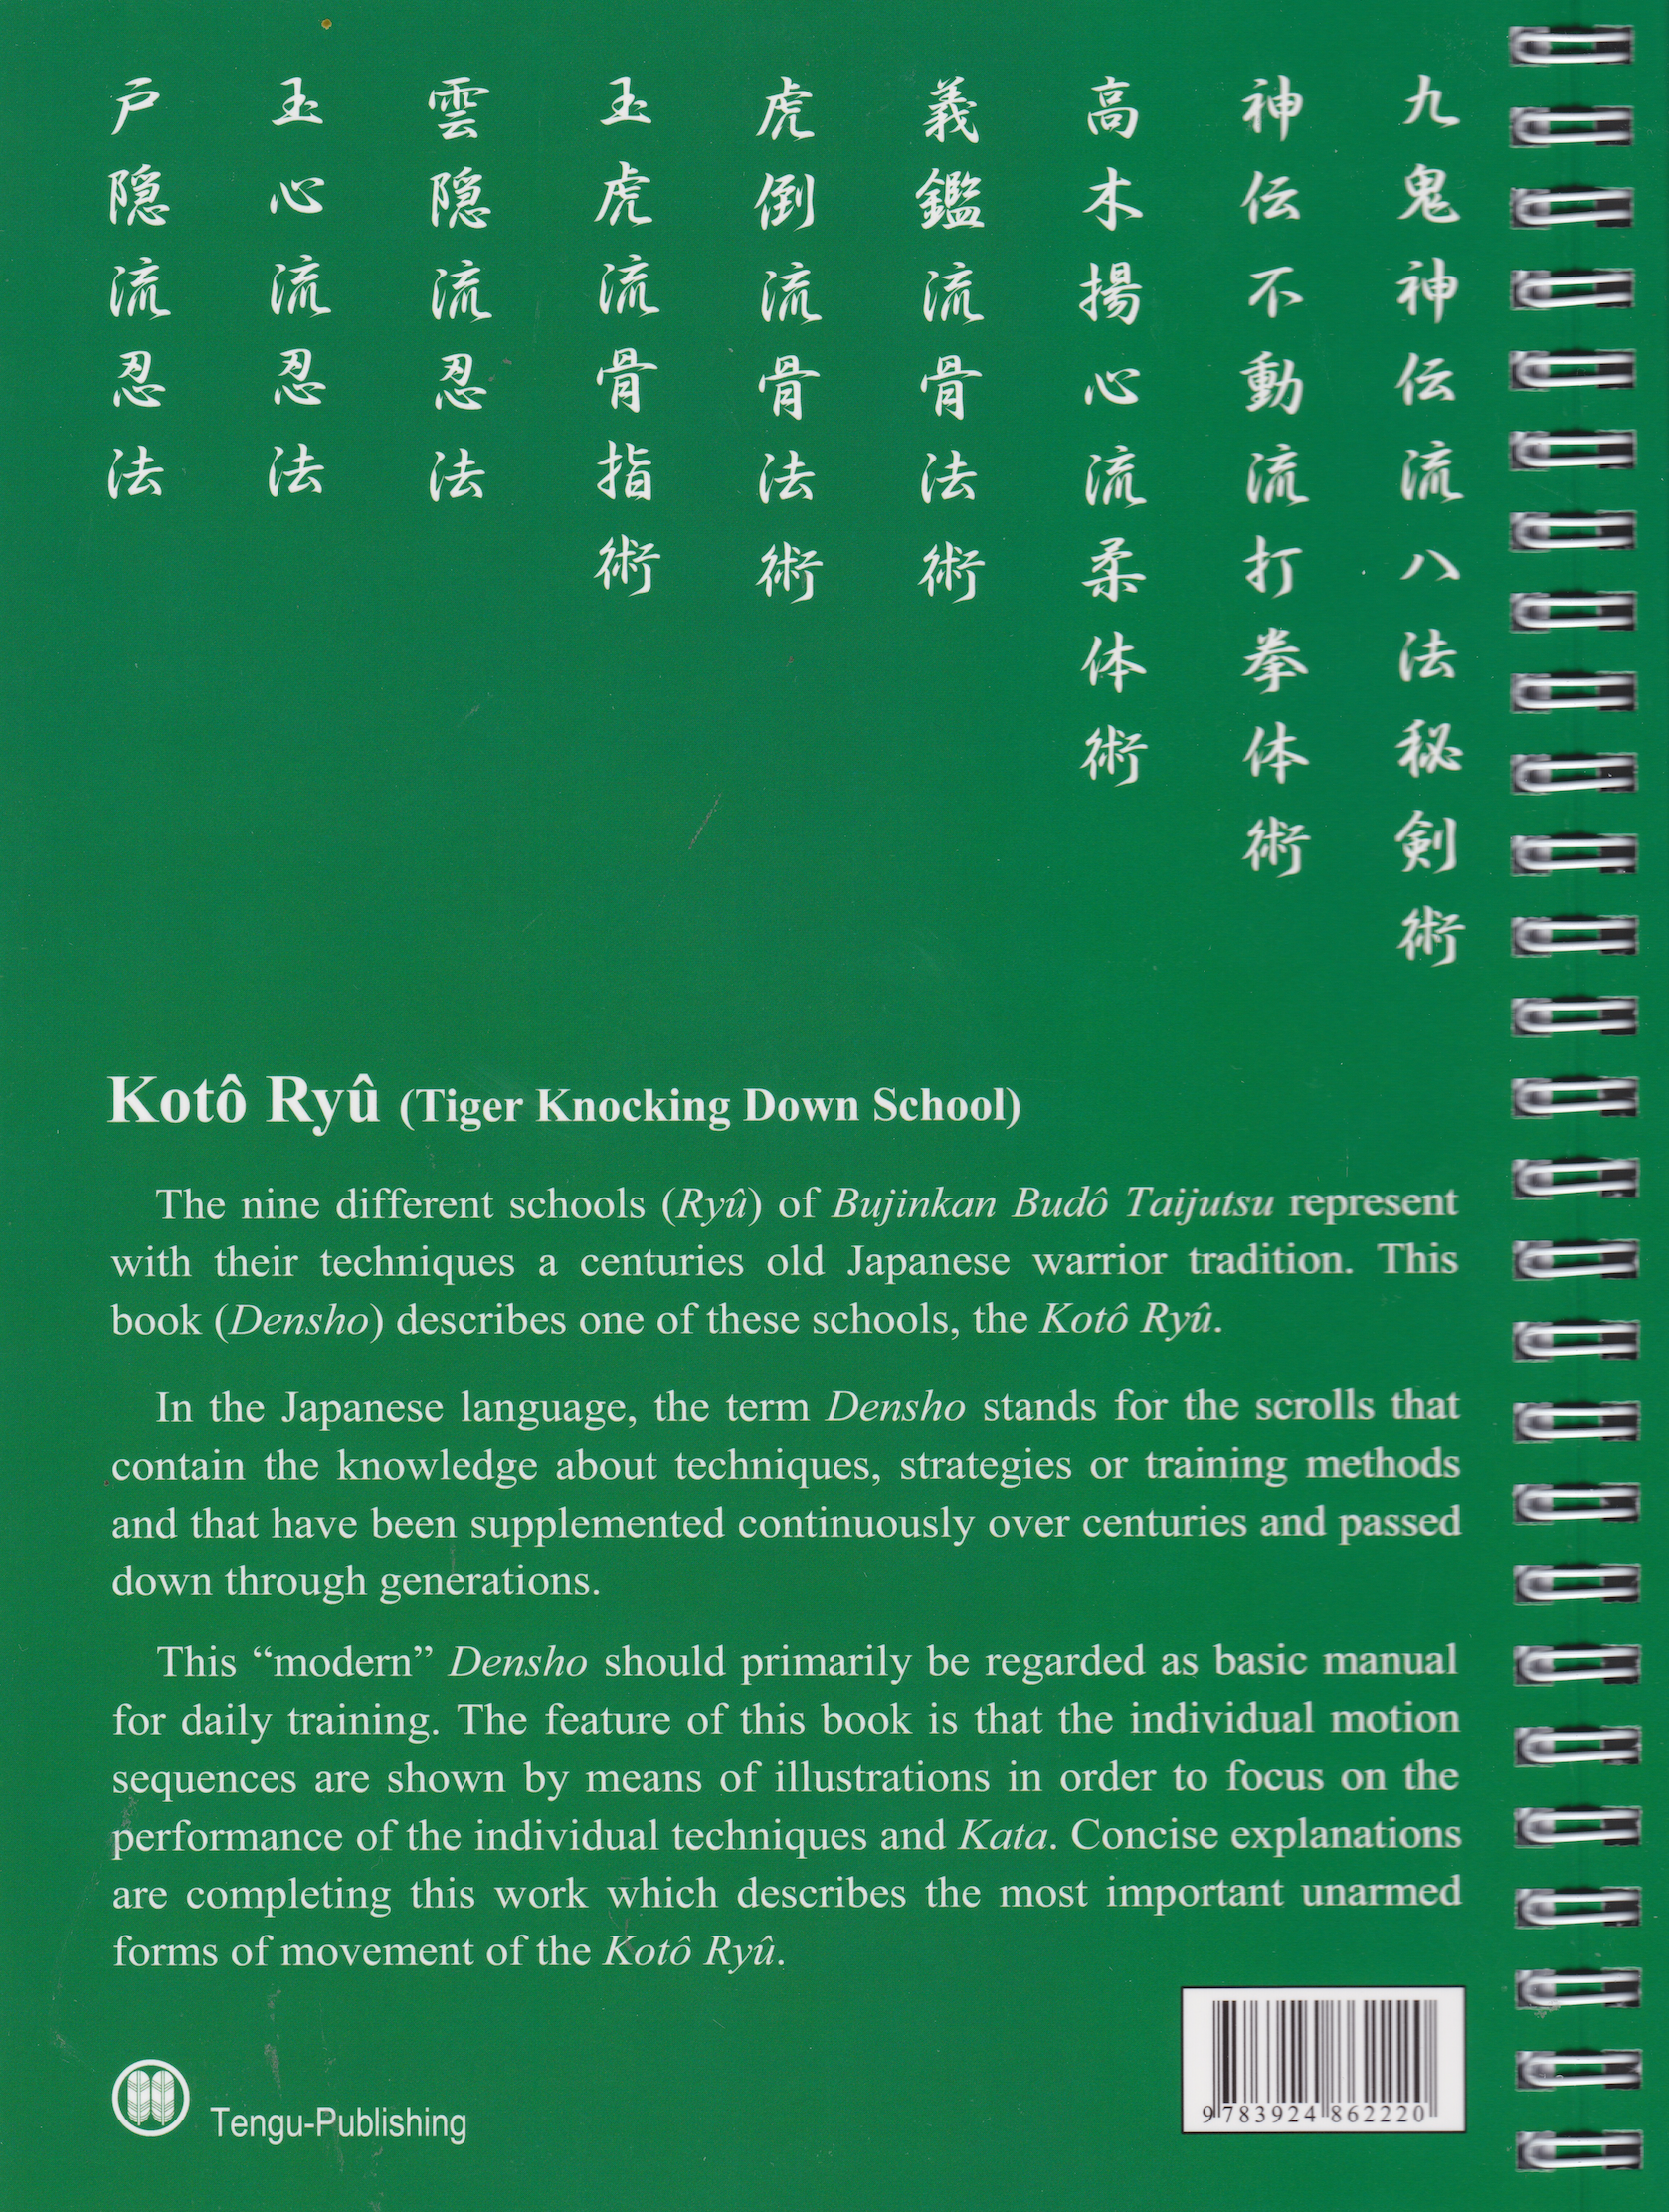 九鬼神伝流八法秘剣術
神伝不動流打拳体術
高木揚心流柔体術
義鑑流骨法術
虎倒流骨法術
玉虎流骨指術
雲隠流忍法
玉心流忍法
戸隠流忍法
Kotô Ryû (Tiger Knocking Down School)
The nine different schools (Ryû) of Bujinkan Budô Taijutsu represent
with their techniques a centuries old Japanese warrior tradition. This
book (Densho) describes one of these schools, the Kotô Ryû.
In the Japanese language, the term Densho stands for the scrolls that
contain the knowledge about techniques, strategies or training methods
and that have been supplemented continuously over centuries and passed
down through generations.
This “modern” Densho should primarily be regarded as basic manual
for daily training. The feature of this book is that the individual motion
sequences are shown by means of illustrations in order to focus on the
performance of the individual techniques and Kata. Concise explanations
are completing this work which describes the most important unarmed
forms of movement of the Kotô Ryû.
Tengu-Publishing
9 783924 862220